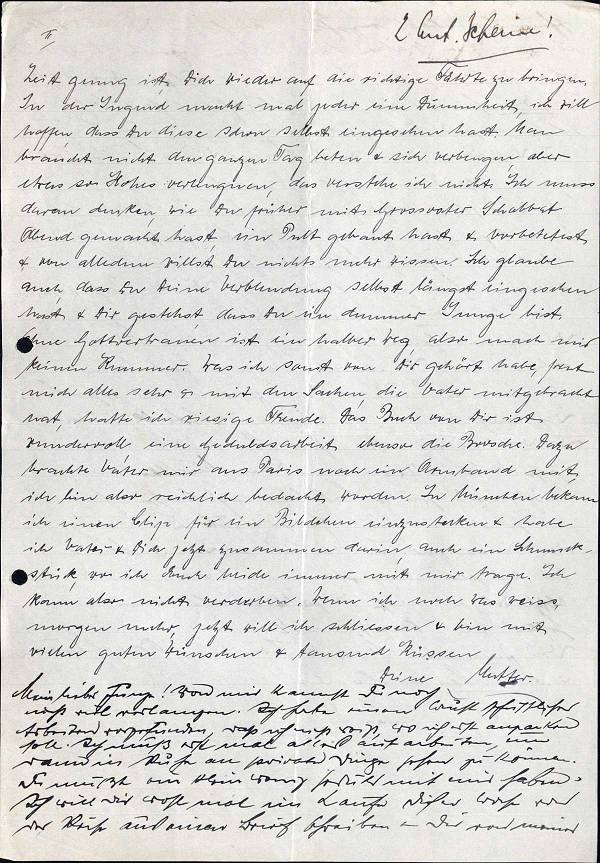 II
2 Ant. Scheine!
Zeit genug ist, Dich wieder auf die richtige Fährte zu bringen.
In der Jugend macht mal jeder eine Dummheit, ich will
hoffen dass Du diese schon selbst eingesehen hast. Man
braucht nicht den ganzen Tag beten & sich verbeugen, aber
etwas so Hohes verleugnen, das verstehe ich nicht. Ich muss
daran denken wie Du früher mit Grossvater Schabbat
Abend gemacht hast, ein Pult gebaut hast & vorbetetest
& von alledem willst Du nichts mehr wissen. Ich glaube
auch, dass Du Deine Verblendung selbst längst eingesehen
hast & Dir gestehst, dass Du ein dummer Junge bist.
Ohne Gottvertrauen ist ein halber Weg, also mach mir
keinen Kummer. Was ich sonst von Dir gehört habe, freut
mich alles sehr & mit den Sachen die Vater mitgebracht
hat, hatte ich riesige Freude. Das Buch von Dir ist
wundervoll eine Geduldsarbeit, ebenso die Brosche. Dazu
brachte Vater mir aus Paris noch ein Armband mit,
ich bin also reichlich bedacht worden. In München bekam
ich einen Clip für ein Bildchen einzustecken & habe
ich Vater & Dich jetzt zusammen darin, auch ein Schmuck-
stück, wo ich Euch beide immer mit mir trage. Ich
kann also nicht verderben. Wenn ich noch was weiss,
morgen mehr, jetzt will ich schliessen & bin mit
vielen guten Wünschen & tausend Küssen
Deine Mutter.
Mein lieber Junge! Von mir kannst Du noch
nicht viel verlangen. Ich habe einen Wust schriftlicher
Arbeiten vorgefunden, daß ich nicht weiß, wo ich erst anpacken
soll. Ich muß erst mal alles aufarbeiten, um
dann in Ruhe an private Dinge gehen zu können.
Du mußt ein klein wenig Geduld mit mir haben.
Ich will Dir wohl mal im Laufe dieser Woche
der Reise einen Brief schreiben & Dir von meiner